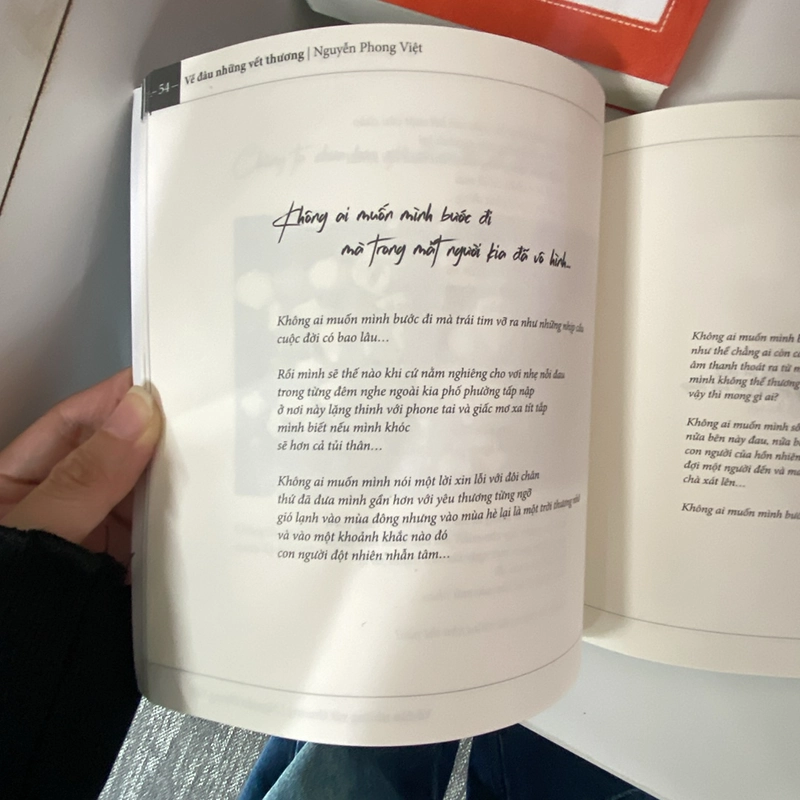 – 54 – Về đâu những vết thương | Nguyễn Phong Việt
Không ai muốn mình bước đi
mà trong mắt người kia đã vô hình...
Không ai muốn mình bước đi mà trái tim vỡ ra như những nhịp cầu
cuộc đời có bao lâu…
Rồi mình sẽ thế nào khi cứ nằm nghiêng cho vơi nhẹ nỗi đau
trong từng đêm nghe ngoài kia phố phường tấp nập
ở nơi này lặng thinh với phone tai và giấc mơ xa tít tắp
mình biết nếu mình khóc
sẽ hơn cả tủi thân…
Không ai muốn mình nói một lời xin lỗi với đôi chân
thứ đã đưa mình gần hơn với yêu thương từng ngỡ
gió lạnh vào mùa đông nhưng vào mùa hè lại là một trời thương nhớ
và vào một khoảnh khắc nào đó
con người đột nhiên nhẫn tâm…
Không ai muốn mình
như thể chẳng ai còn
âm thanh thoát ra từ
mình không thể thương
vậy thì mong gì ai?
Không ai muốn mình
nửa bên này đau, nửa
con người của hồn nhiên
đợi một người đến và
chà xát lên…
Không ai muốn mình